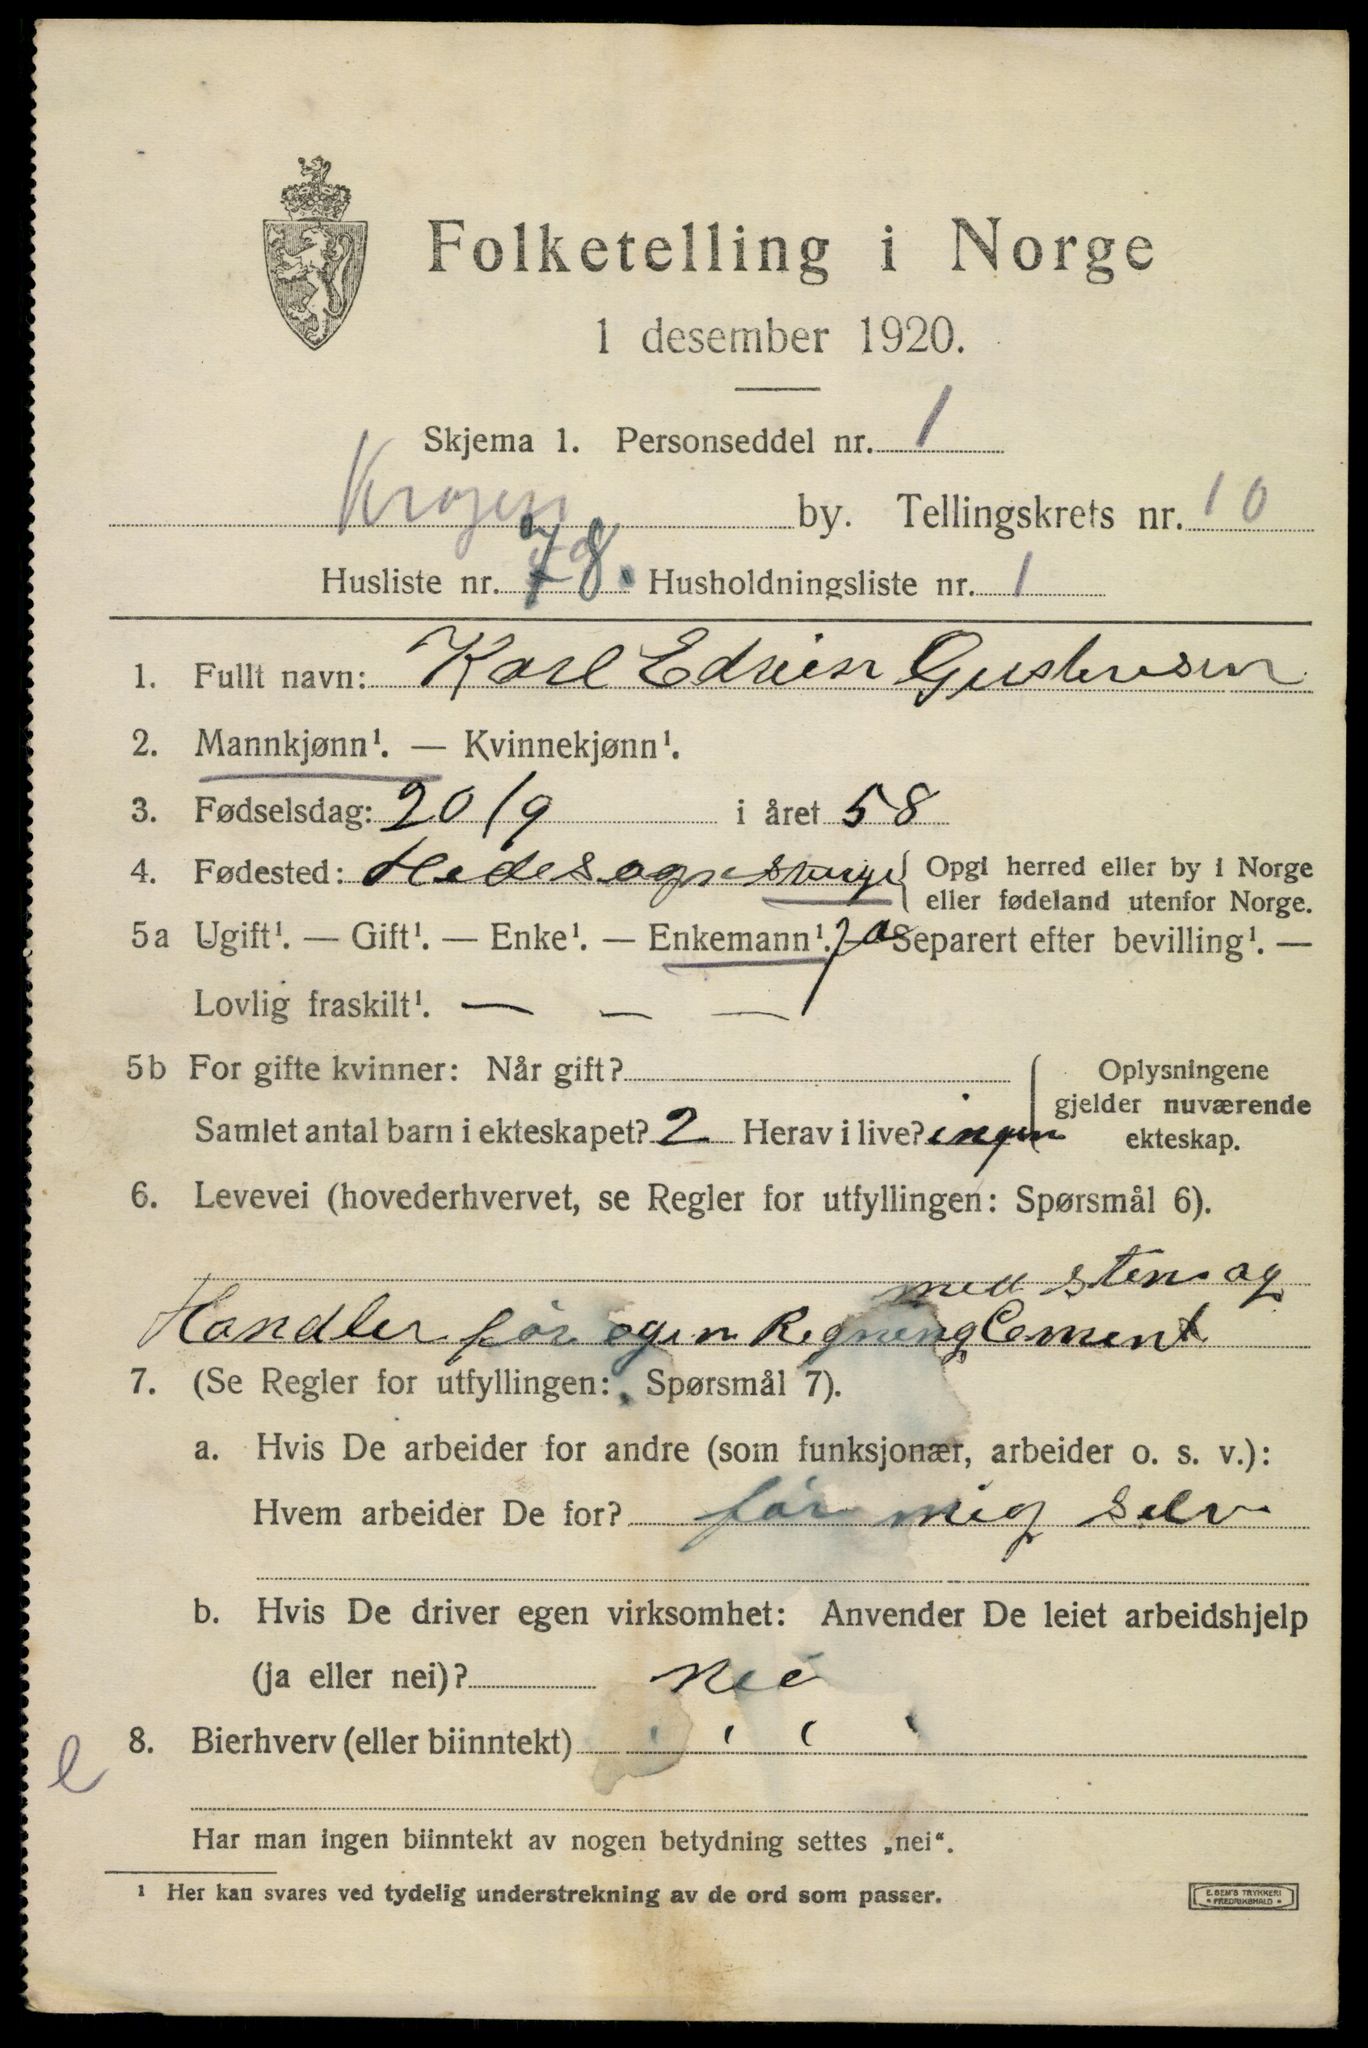 Folketelling i Norge
1 desember 1920.
Skjema 1. Personseddel nr. 1
by. Tellingskrets nr. 10
Husliste nr. 78. Husholdningsliste nr. 1
1. Fullt navn: Karl Edvien Gustavsen
2. Mannkjønn¹. — Kvinnekjønn¹.
3. Fødselsdag: 20/9 i året 58
4. Fødested: Hedesogn { Opgi herred eller by i Norge
eller fødeland utenfor Norge.
5a Ugift¹. — Gift¹. — Enke¹. — Enkemann¹. — ja Separert efter bevilling¹. —
Lovlig fraskilt¹. — — —
5b For gifte kvinner: Når gift? { Oplysningene
gjelder nuværende
Samlet antal barn i ekteskapet? 2 Herav i live? ingen
ekteskap.
6. Levevei (hovederhvervet, se Regler for utfyllingen: Spørsmål 6).
med sten og
Handler før egen Regning Cement
7. (Se Regler for utfyllingen: Spørsmål 7).
a. Hvis De arbeider for andre (som funksjonær, arbeider o. s. v.):
Hvem arbeider De for? før mig selv
b. Hvis De driver egen virksomhet: Anvender De leiet arbeidshjelp
(ja eller nei)? nei
8. Bierhverv (eller biinntekt)
Har man ingen biinntekt av nogen betydning settes „nei“.
¹ Her kan svares ved tydelig understrekning av de ord som passer.
E. SEM'S TRYKKERI
• FREDRIKSHALD •